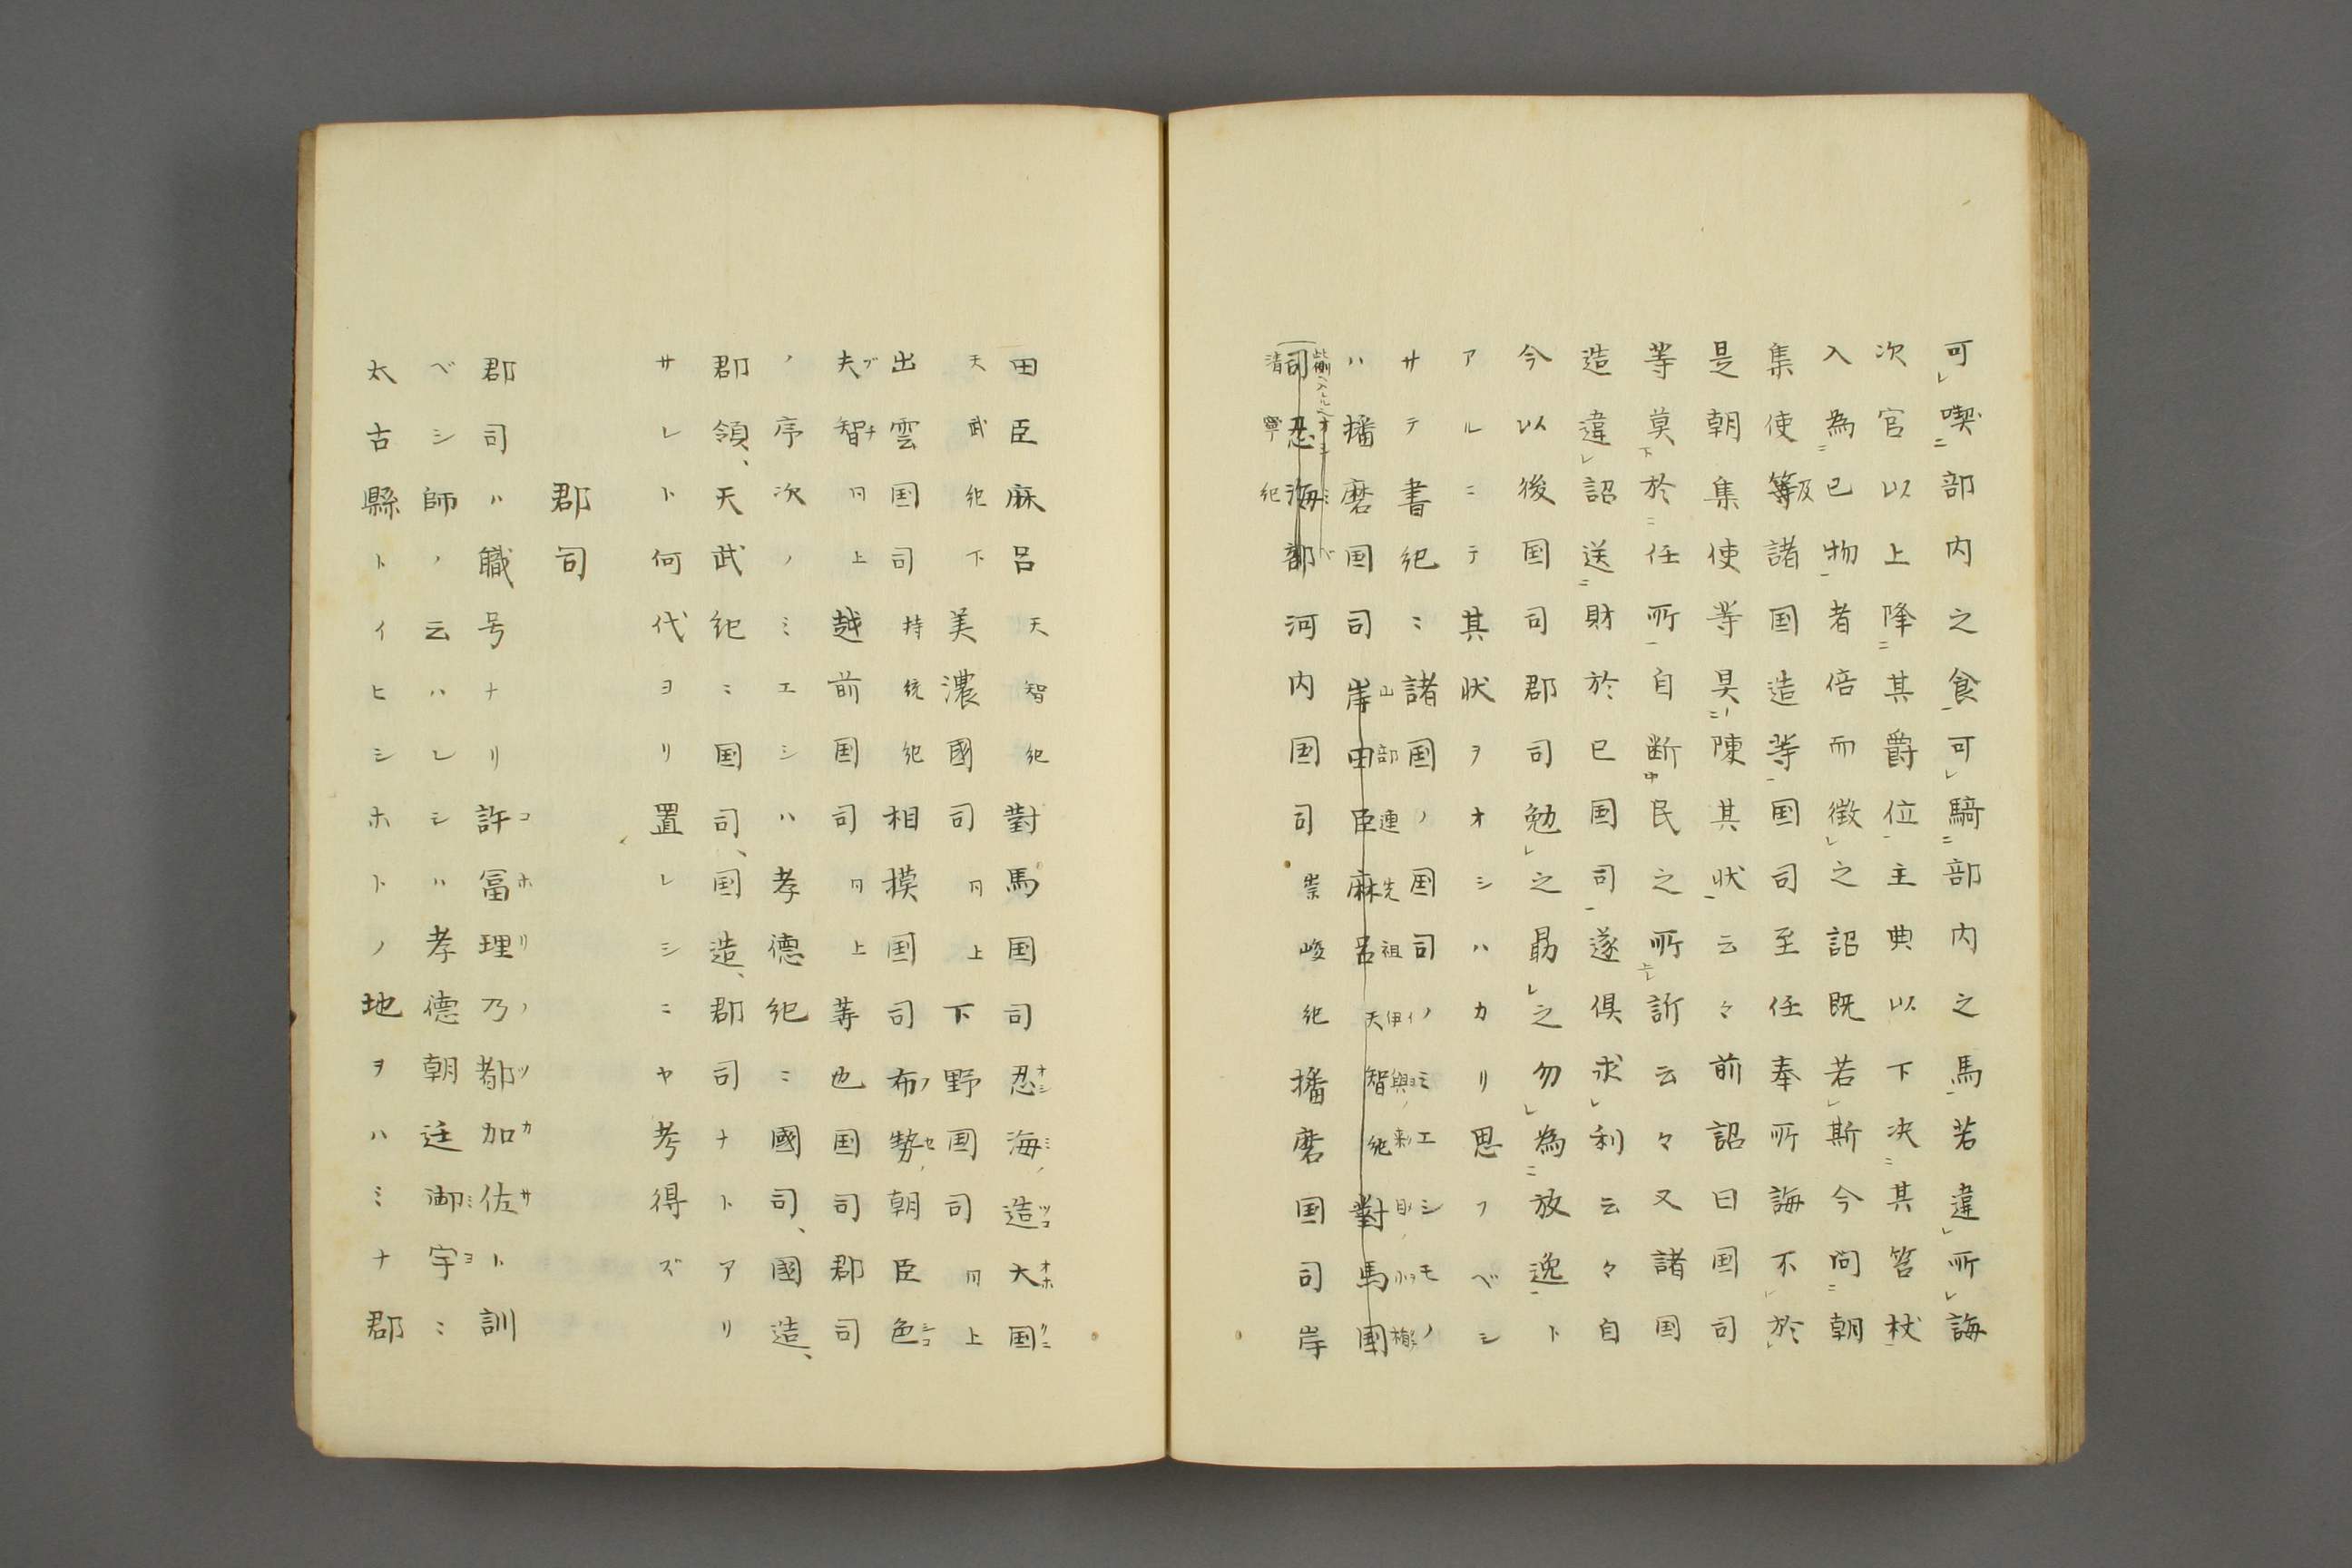 可喫部内之食可騎部内之馬若違所誨
次官以上降其爵位主典以下决其笞杖
入為己物者倍而徴之詔既若斯今問朝
集使及等諸国造等国司至任奉所誨不於
是朝集使等具陳其状云々前詔曰国司
等莫於任所自断民之所訴云々又諸国
造違詔送財於己国司遂倶求利云々自
今以後国司郡司勉之勗之勿為放逸ト
アルニテ其状ヲオシハカリ思フベシ
サテ書紀ニ諸国ノ国司ノミエシモノ
山部連先祖伊與来目小楯
ハ播磨国司岸田臣麻呂天智紀對馬國
此側ヘ入ルヘ
司忍海部河内国司崇峻紀播磨国司岸
清寧紀
田臣麻呂天智紀對馬国司忍海造大国
天武紀下美濃國司同上下野国司同上
出雲国司持統紀相摸国司布勢朝臣色
夫智同上越前国司同上等也国司郡司
ノ序次ノミエシハ孝德紀ニ國司、國造、
郡領、天武紀ニ国司、国造、郡司ナトアリ
サレト何代ヨリ置レシニヤ考得ズ
郡司
郡司ハ職号ナリ許冨理乃都加佐ト訓
ベシ師ノ云ハレシハ孝德朝廷御宇ニ
太古縣トイヒシホトノ地ヲハミナ郡